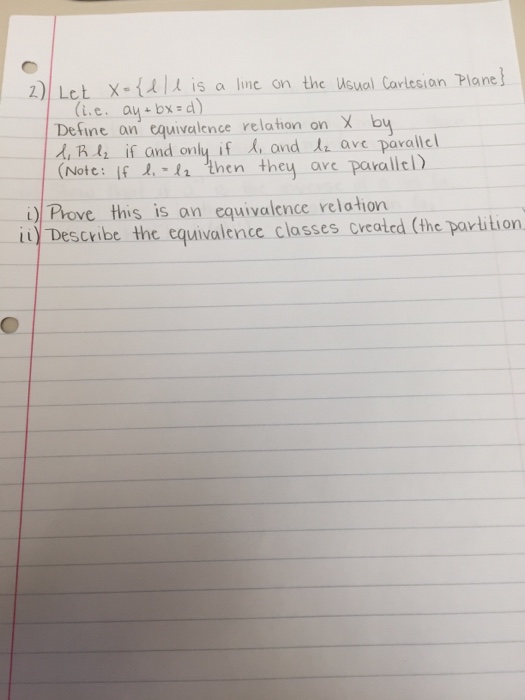 2) Let X = {l | l is a line on the Usual Cartesian Plane}
(i.e. ay + bx = d)
Define an equivalence relation on X by
l₁ R l₂ if and only if l₁ and l₂ are parallel
(Note: If l₁ = l₂ then they are parallel)
i) Prove this is an equivalence relation
ii) Describe the equivalence classes created (the partition)